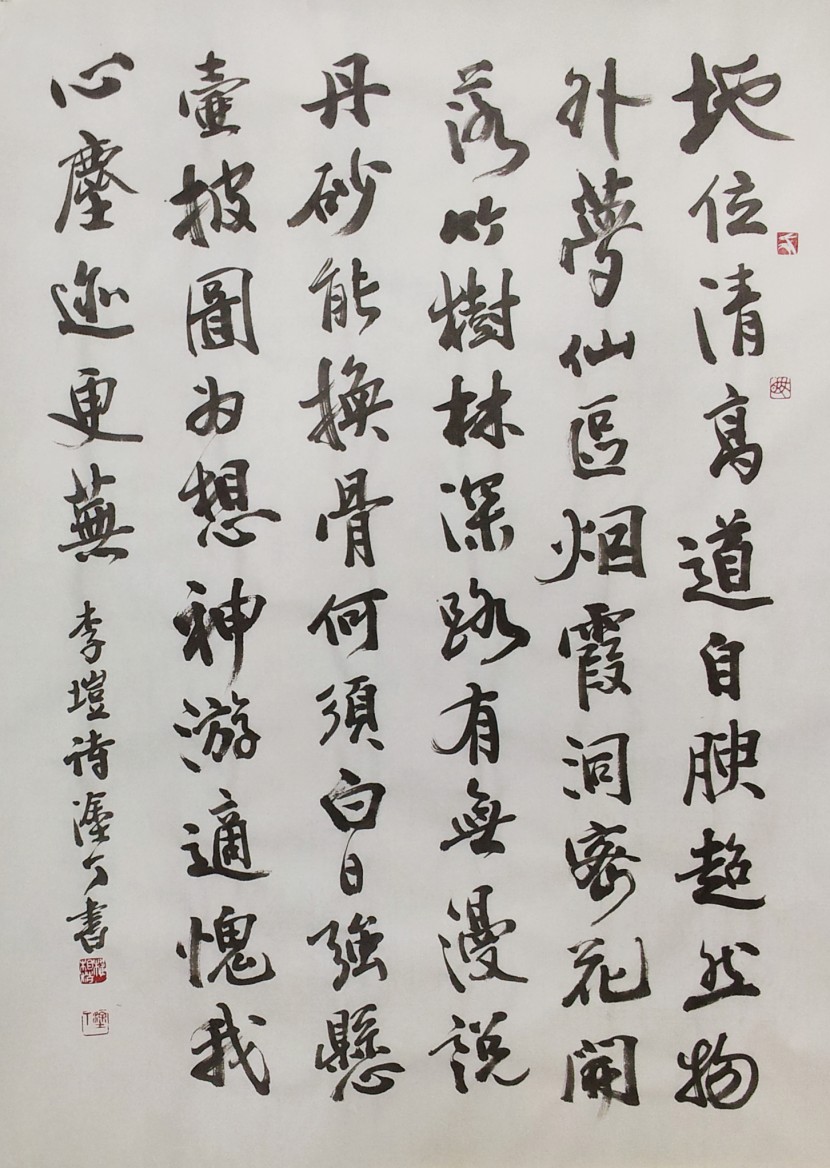 地位清高道自腴超然物
外夢仙區烟霞洞密花開
落竹樹林深路有無漫說
丹砂能換骨何須白日強懸
壺披圖為想神游適愧我
心塵迹更蕪 李塏詩 書